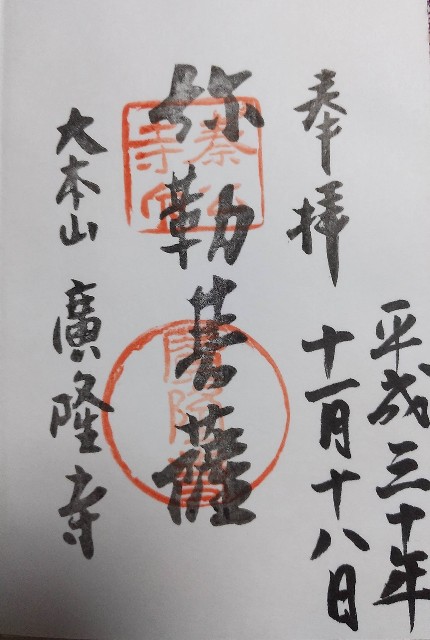 平成三十年
奉拝 十一月十八日
弥勒菩薩
大本山 廣隆寺